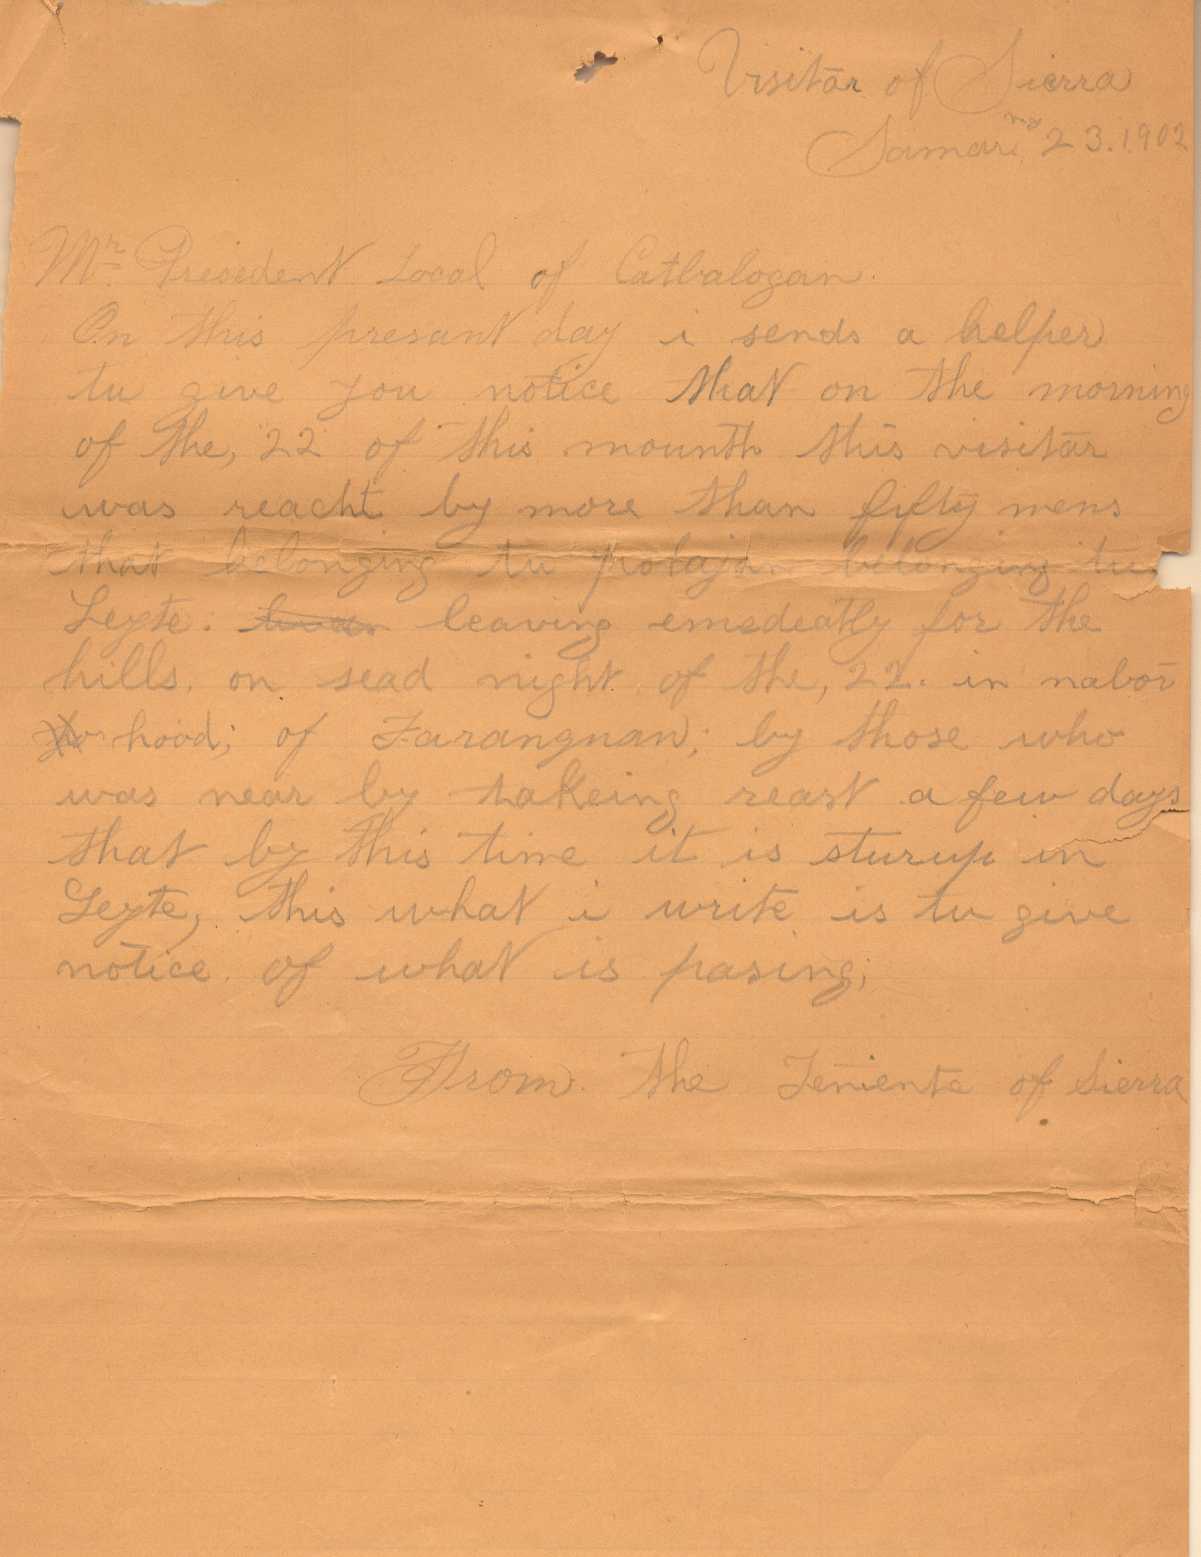 Visitar of Sierra
Samar 23.1902
Mr. President Local of Catbalogan.
On this presant day i sends a helper
tu give you notice that on the morning
of the, 22 of this mounth this visitar
was reacht by more than fifty mens
that belonging tu polajan belonging tu
Leyte: leaving emedeatly for the
hills. on sead night of the, 22. in nabor
hood; of Tarangnan; by those who
was near by takeing reast a few days
that by this time it is sturup in
Leyte, this what i write is tu give
notice of what is pasing;
From. the Teniente of Sierra